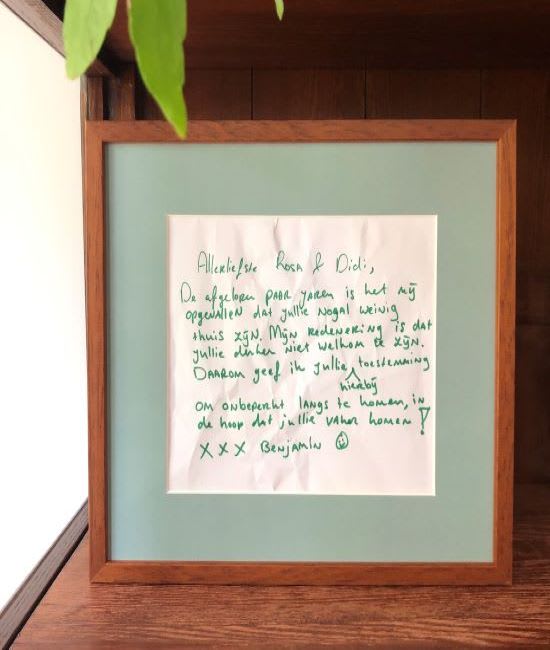 Allerliefste Rosa & Didi,
De afgelopen PAAR JAREN is het mij
opgevallen dat jullie nogal weinig
thuis zijn. Mijn redenering is dat
jullie denken niet welkom te zijn.
DAAROM geef ik jullie toestemming
hierbij
OM onbeperkt langs te komen, in
de hoop dat jullie vaker komen!
XXX BENJAMIN ☺